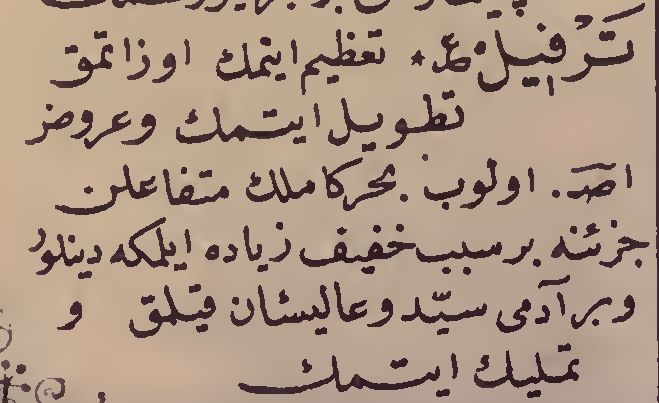 تَرْفِيلْ ع * تعظيم ايتمك اوزاتمق
تطويل ايتمك وعروض
اصـ. اولوب بحر كاملك متفاعلن
جزئنه بر سبب خفيف زياده ايلمكه دينلور
وبر آدمى سيّد وعاليشان قيلمق و
تمليك ايتمك